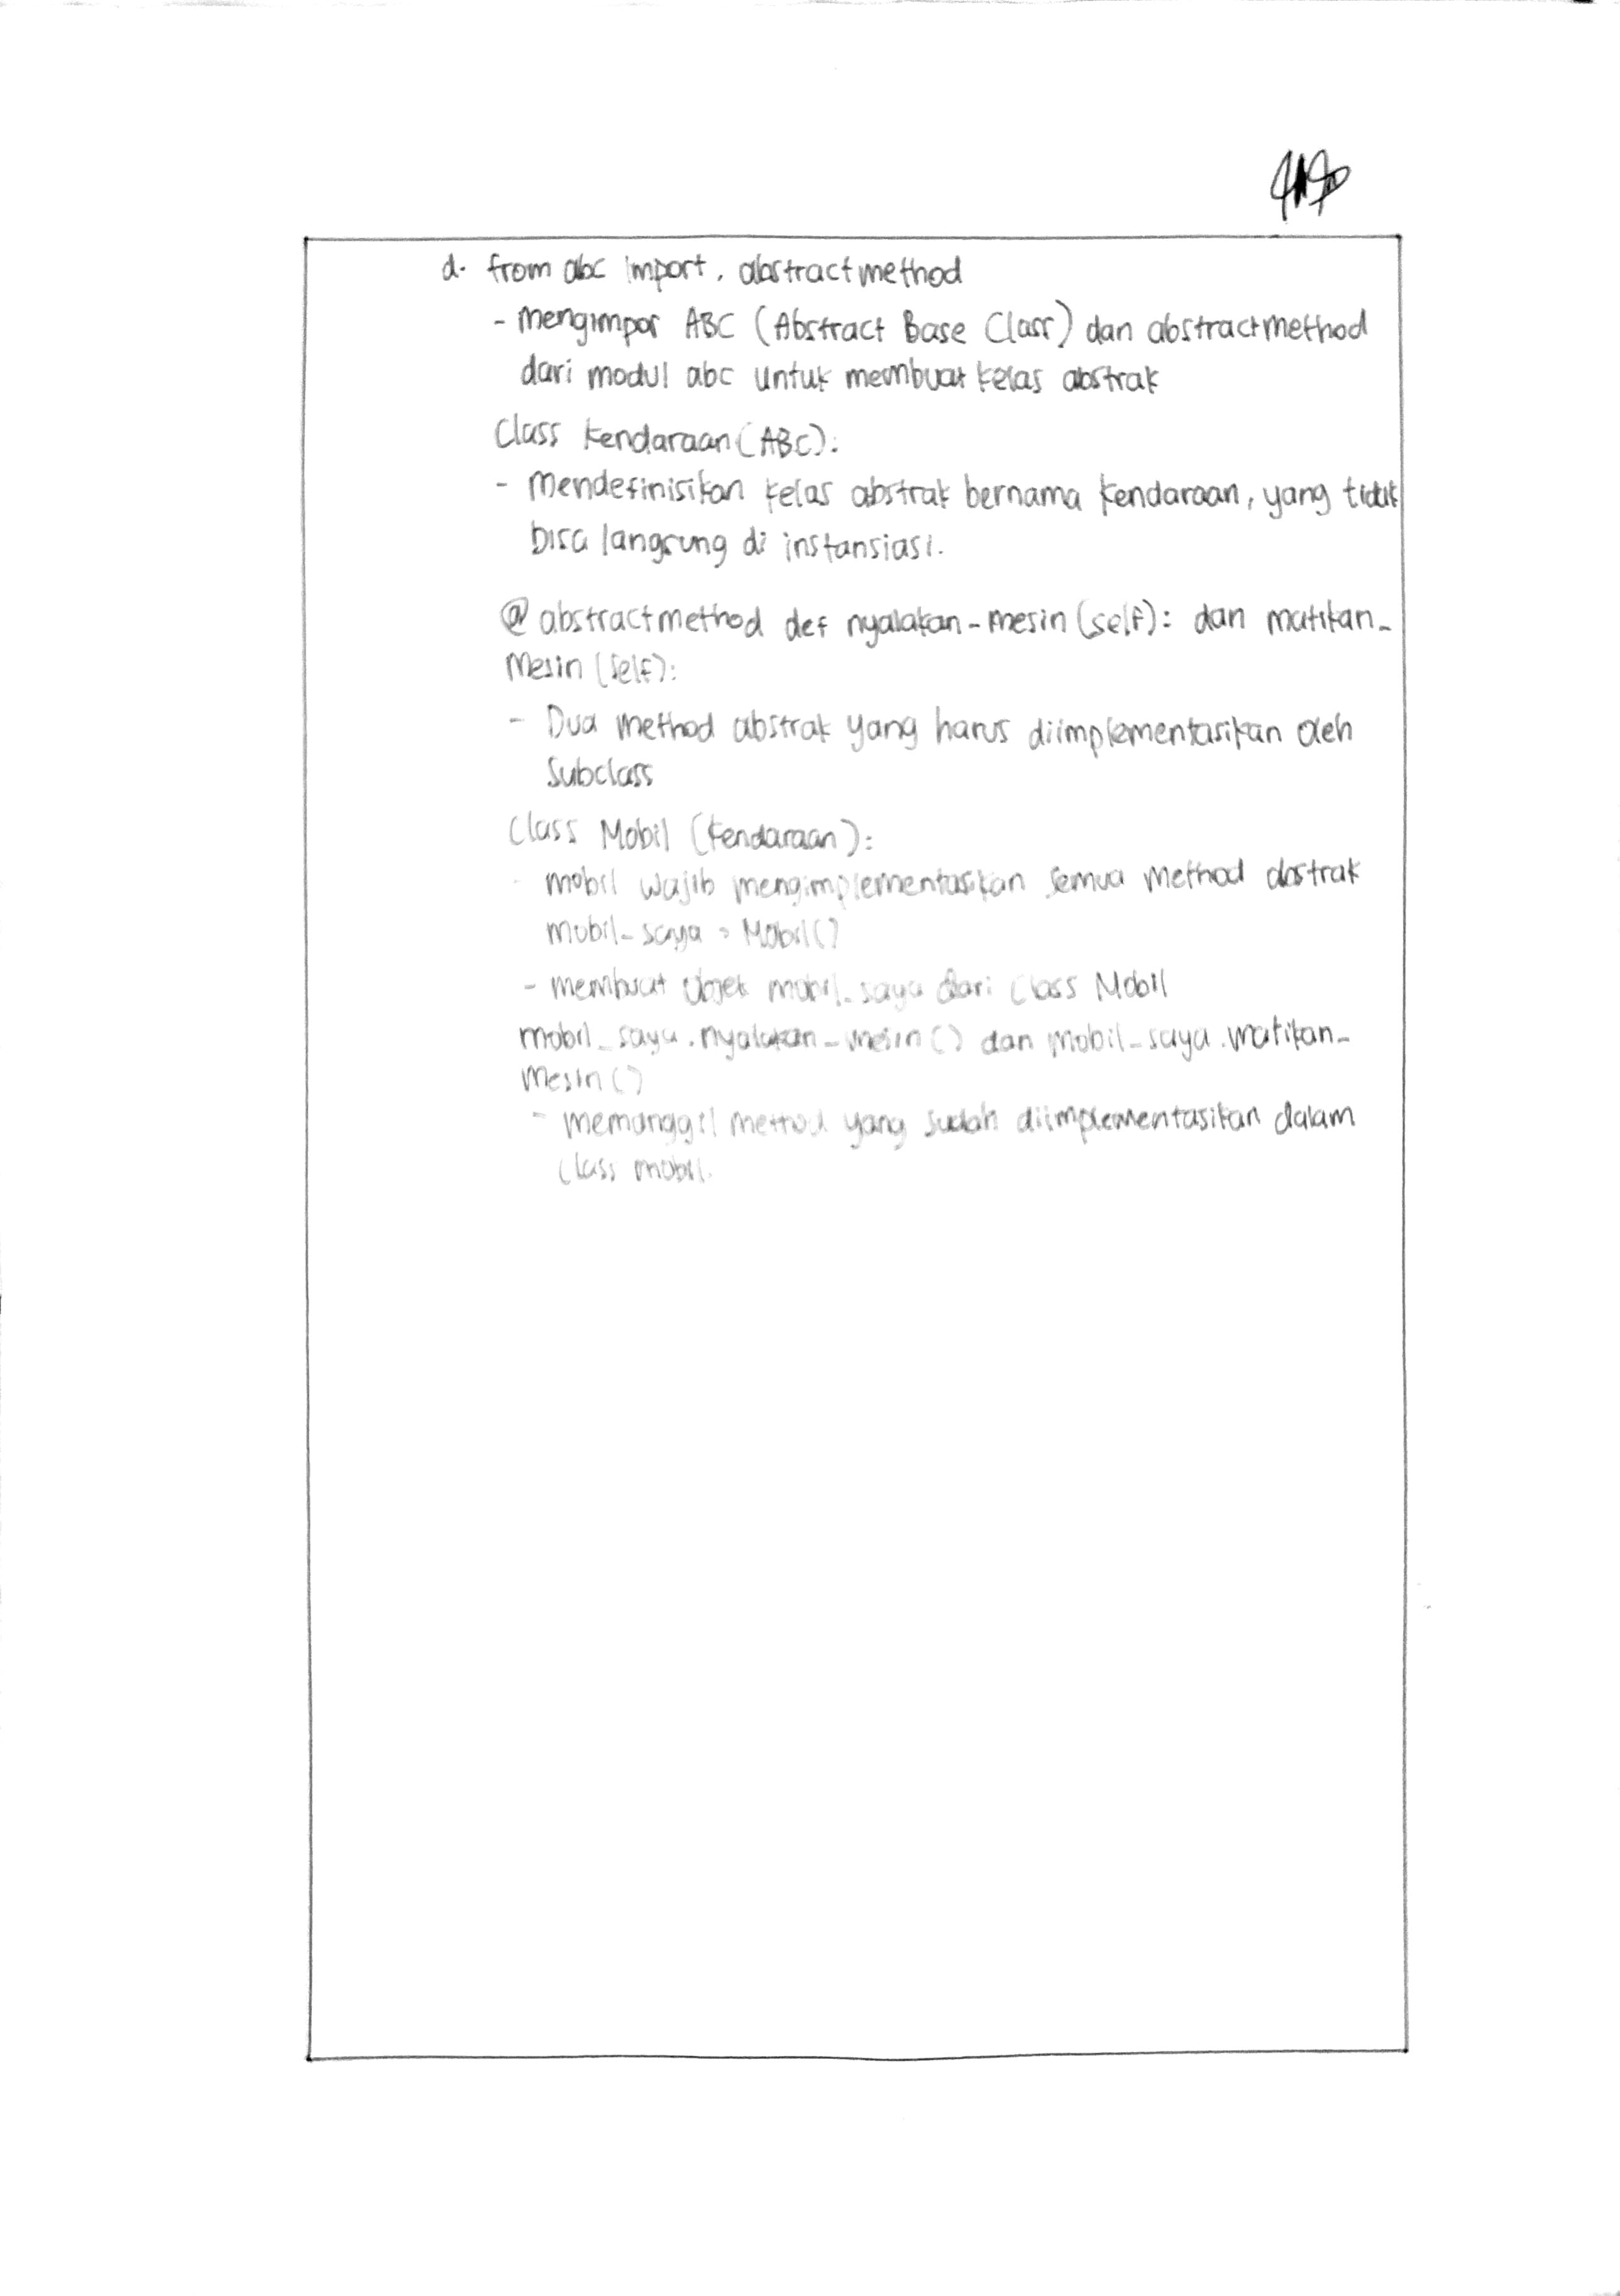 d. from abc import, abstractmethod
- Mengimpor ABC (Abstract Base Class) dan abstractmethod
dari modul abc untuk membuat kelas abstrak
Class Kendaraan (ABC):
- Mendefinisikan kelas abstrak bernama kendaraan, yang tidak
bisa langsung di instansiasi.
@abstractmethod def nyalakan-mesin(self): dan matikan-
Mesin (self):
- Dua method abstrak yang harus diimplementasikan oleh
Subclass
Class Mobil (Kendaraan):
- mobil wajib mengimplementasikan semua method abstrak
mobil_saya = Mobil()
- membuat objek mobil_saya dari class Mobil
mobil_saya.nyalakan_mesin() dan mobil_saya.matikan_
Mesin()
- memanggil method yang sudah diimplementasikan dalam
class mobil.